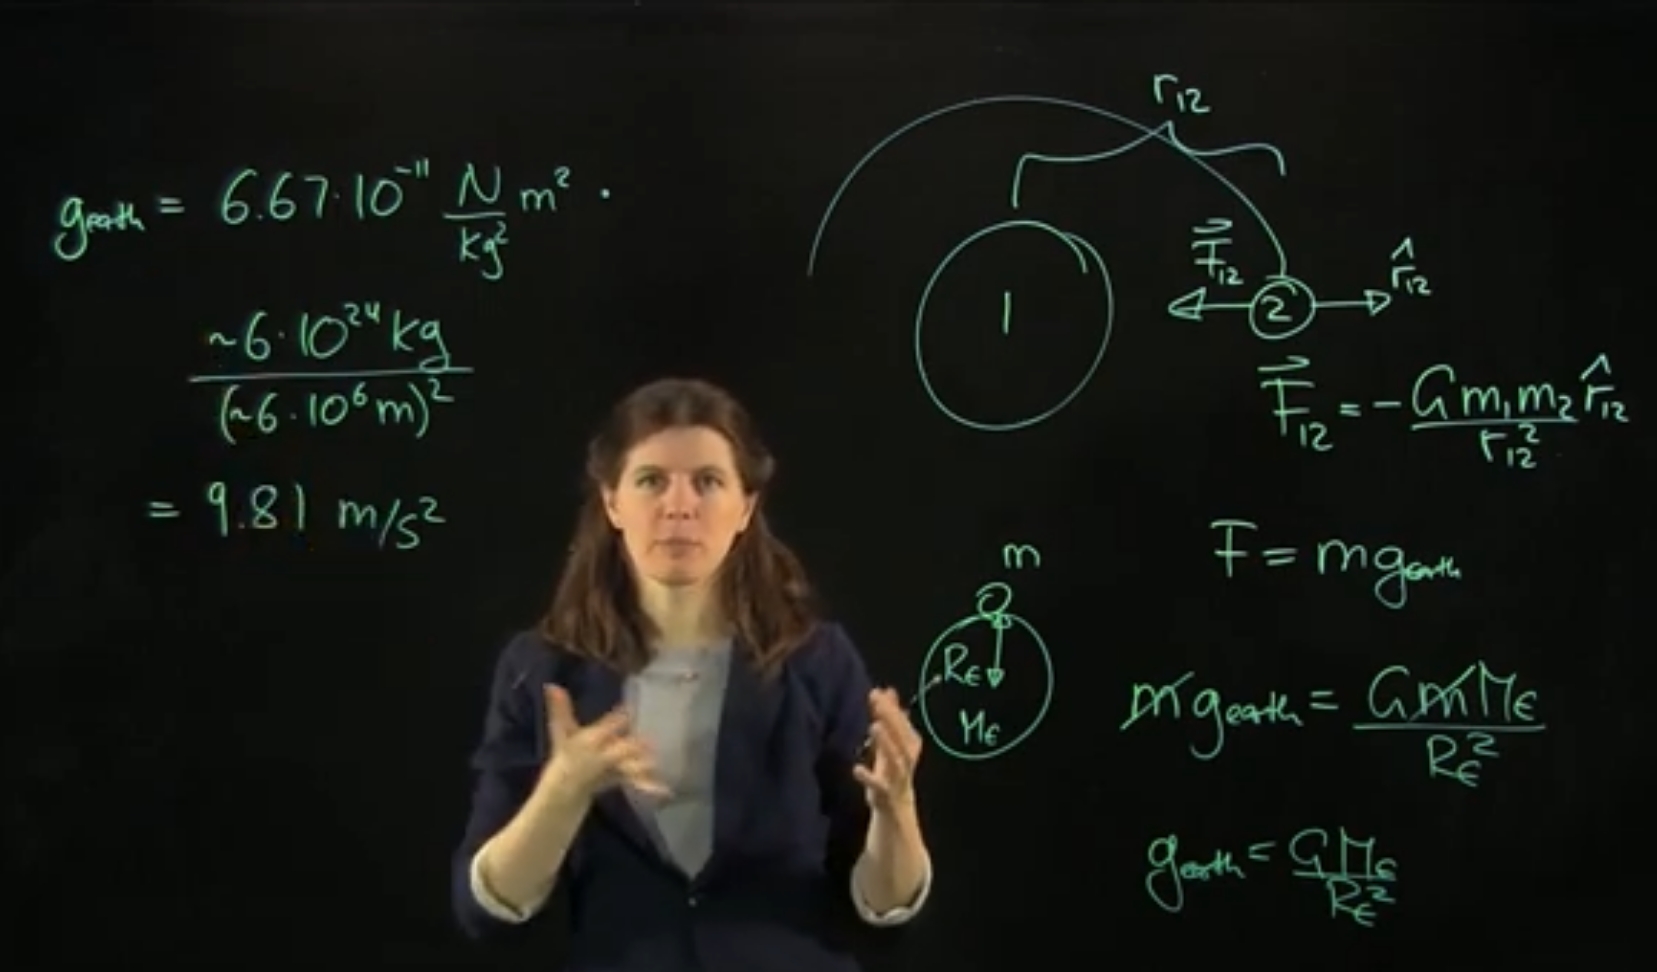 g_earth = 6.67·10⁻¹¹ N/kg² m² ·
~6·10²⁴ kg / (~6·10⁶ m)²
= 9.81 m/s²
r₁₂
1
F⃗₁₂
2
r̂₁₂
F⃗₁₂ = - G m₁ m₂ / r₁₂² r̂₁₂
F = m g_earth
m
R_E
M_E
m g_earth = G m M_E / R_E²
g_earth = G M_E / R_E²